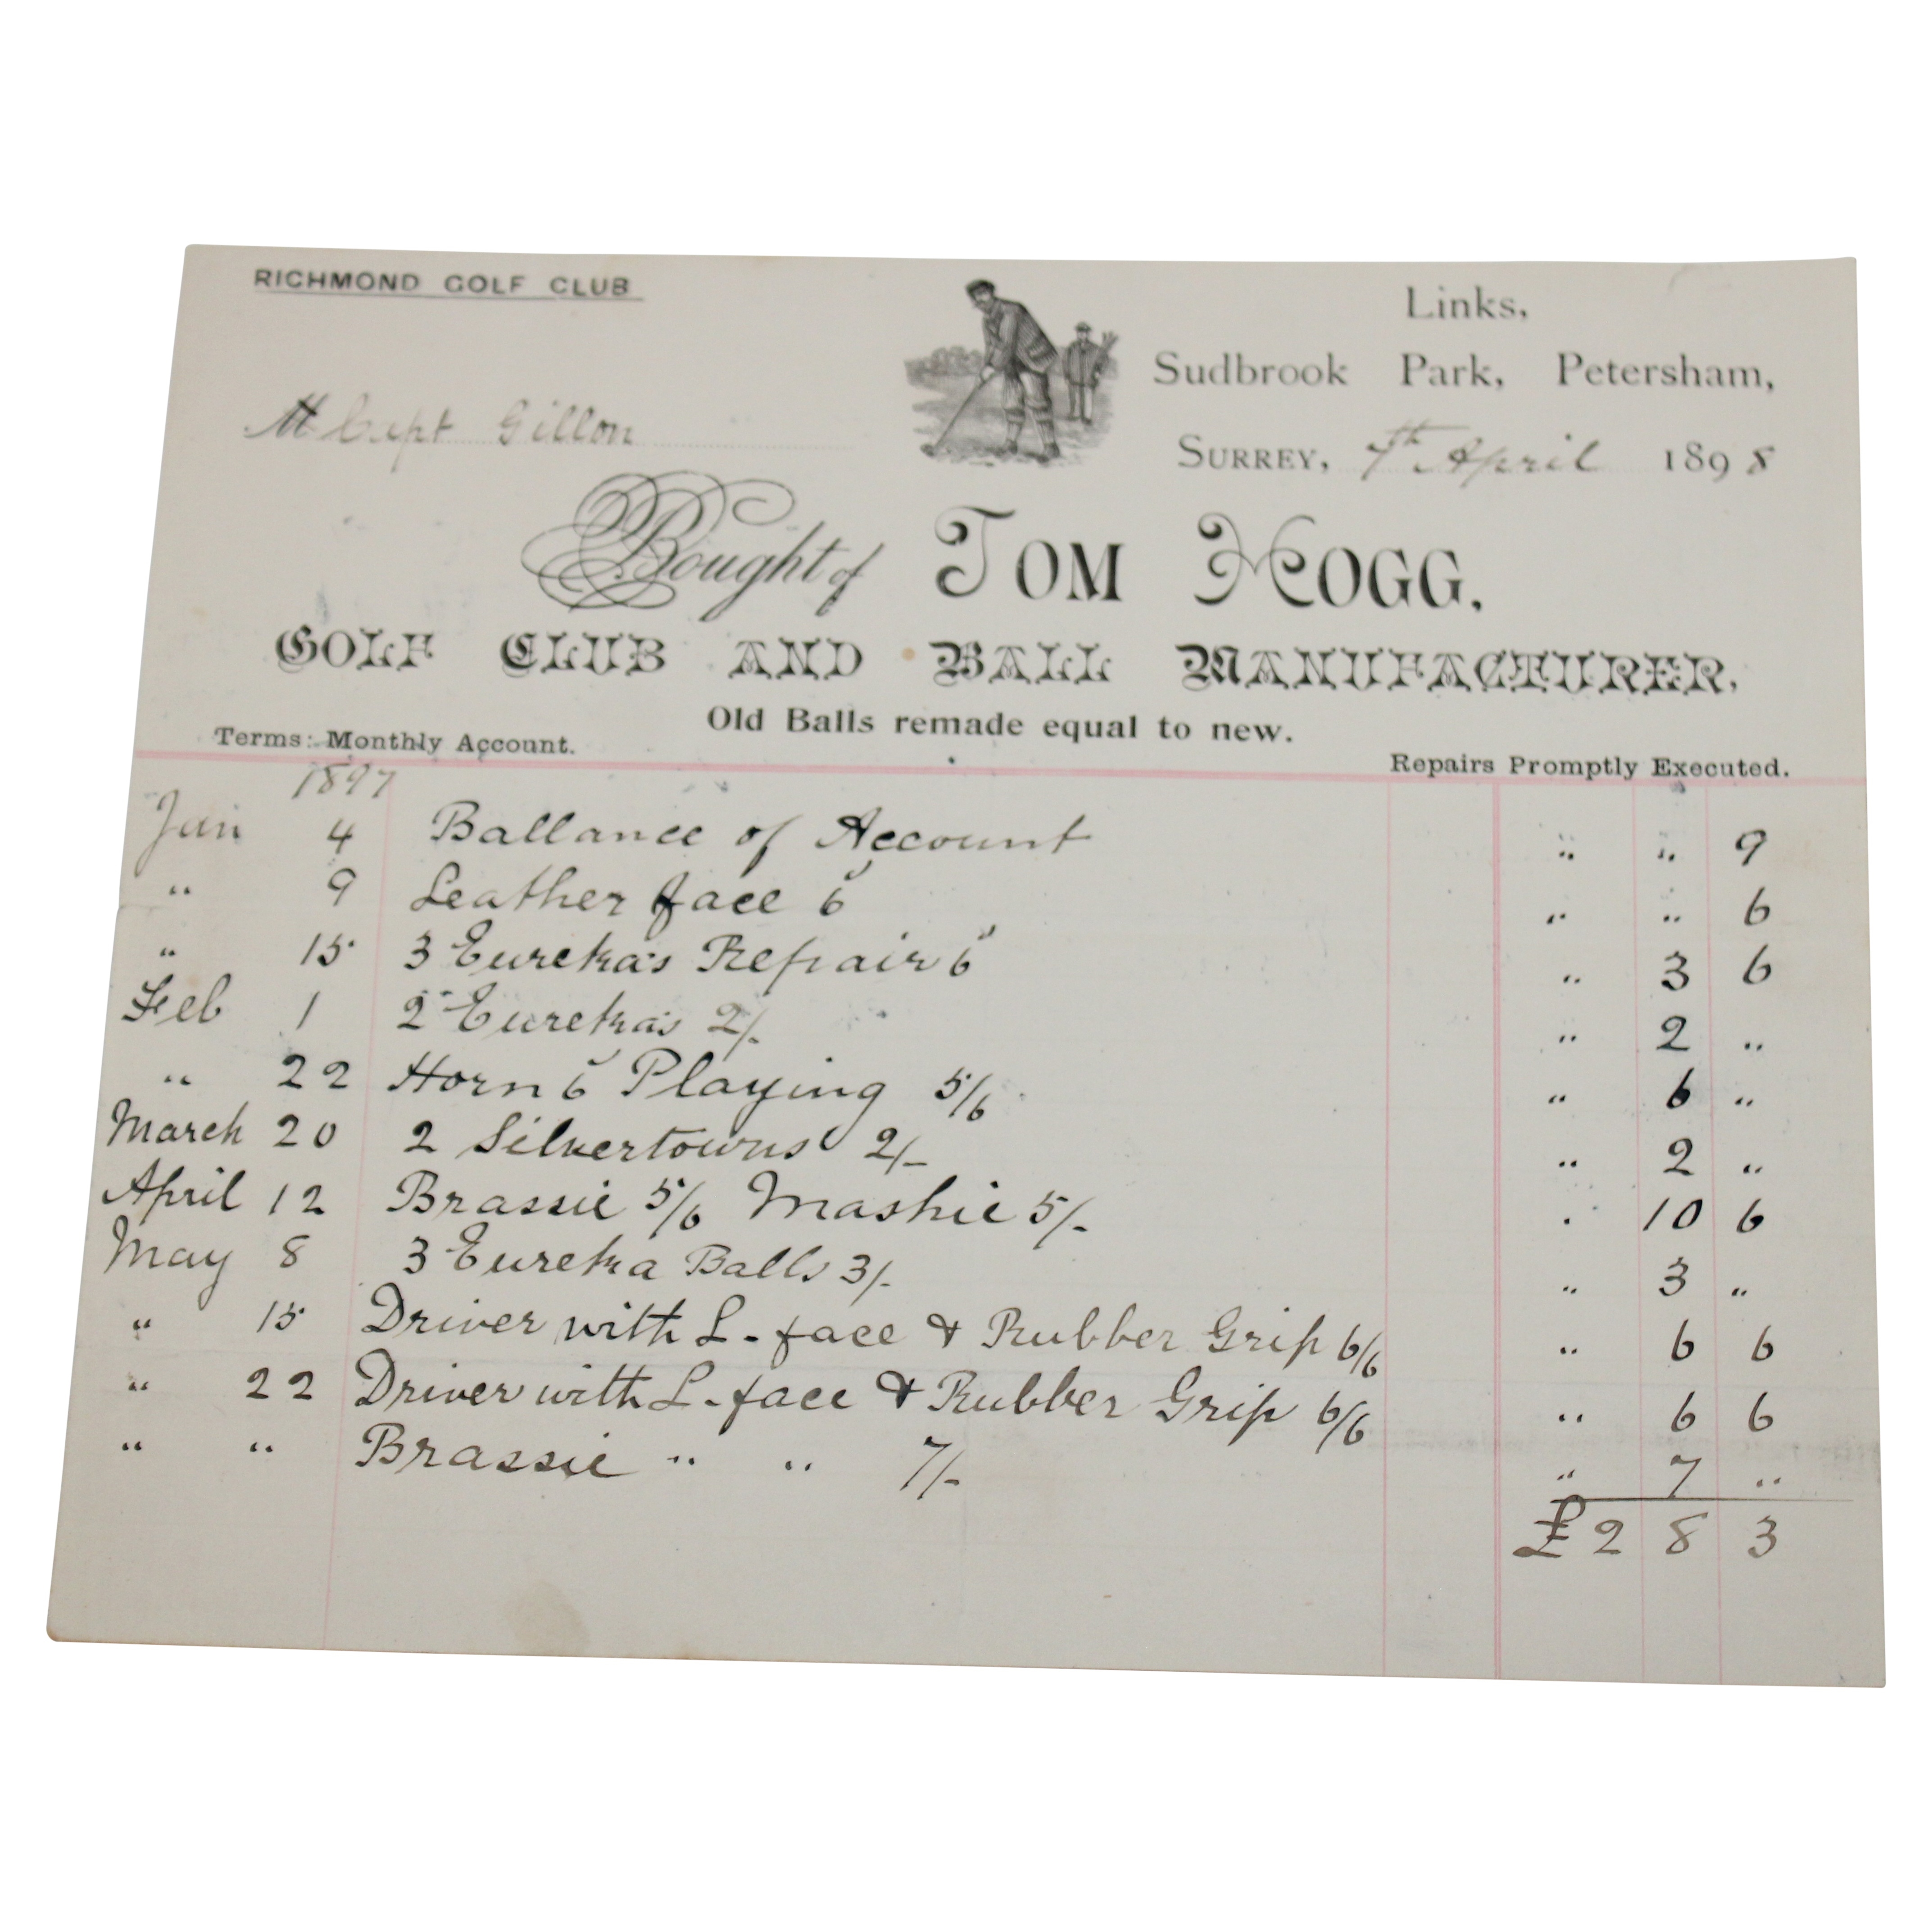 RICHMOND GOLF CLUB
Links,
Sudbrook Park, Petersham,
M Capt Gillon
SURREY, 7th April 1898
Bought of TOM HOGG,
GOLF CLUB AND BALL MANUFACTURER,
Old Balls remade equal to new.
Terms: Monthly Account.
Repairs Promptly Executed.
1897
Jan 4 Ballance of Account " " 9
" 9 Leather face 6" " " 6
" 15 3 Eureka's Repair 6" " 3 6
Feb 1 2 Eureka's 2/- " 2 "
" 22 Horn 6" Playing 5/6 " 6 "
March 20 2 Silvertowns 2/- " 2 "
April 12 Brassie 5/6 Mashie 5/- " 10 6
May 8 3 Eureka Balls 3/- " 3 "
" 15 Driver with L-face & Rubber Grip 6/6 " 6 6
" 22 Driver with L-face & Rubber Grip 6/6 " 6 6
" " Brassie " " 7/- " 7 "
£2 8 3